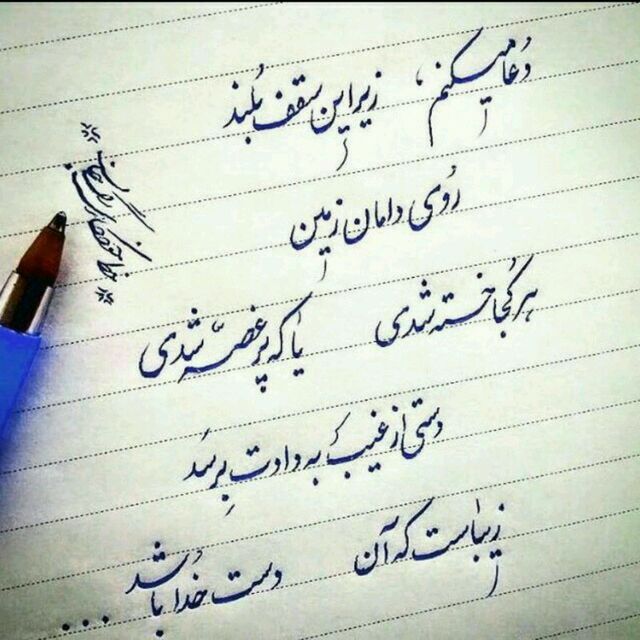 دعا میکنم، زیر این سقف بلند
روی دامان زمین
هر کجا خسته شدی یا که پر غصّه شدی
دستی از غیب به دادت برسد
زیباست که آن دست خدا باشد ...